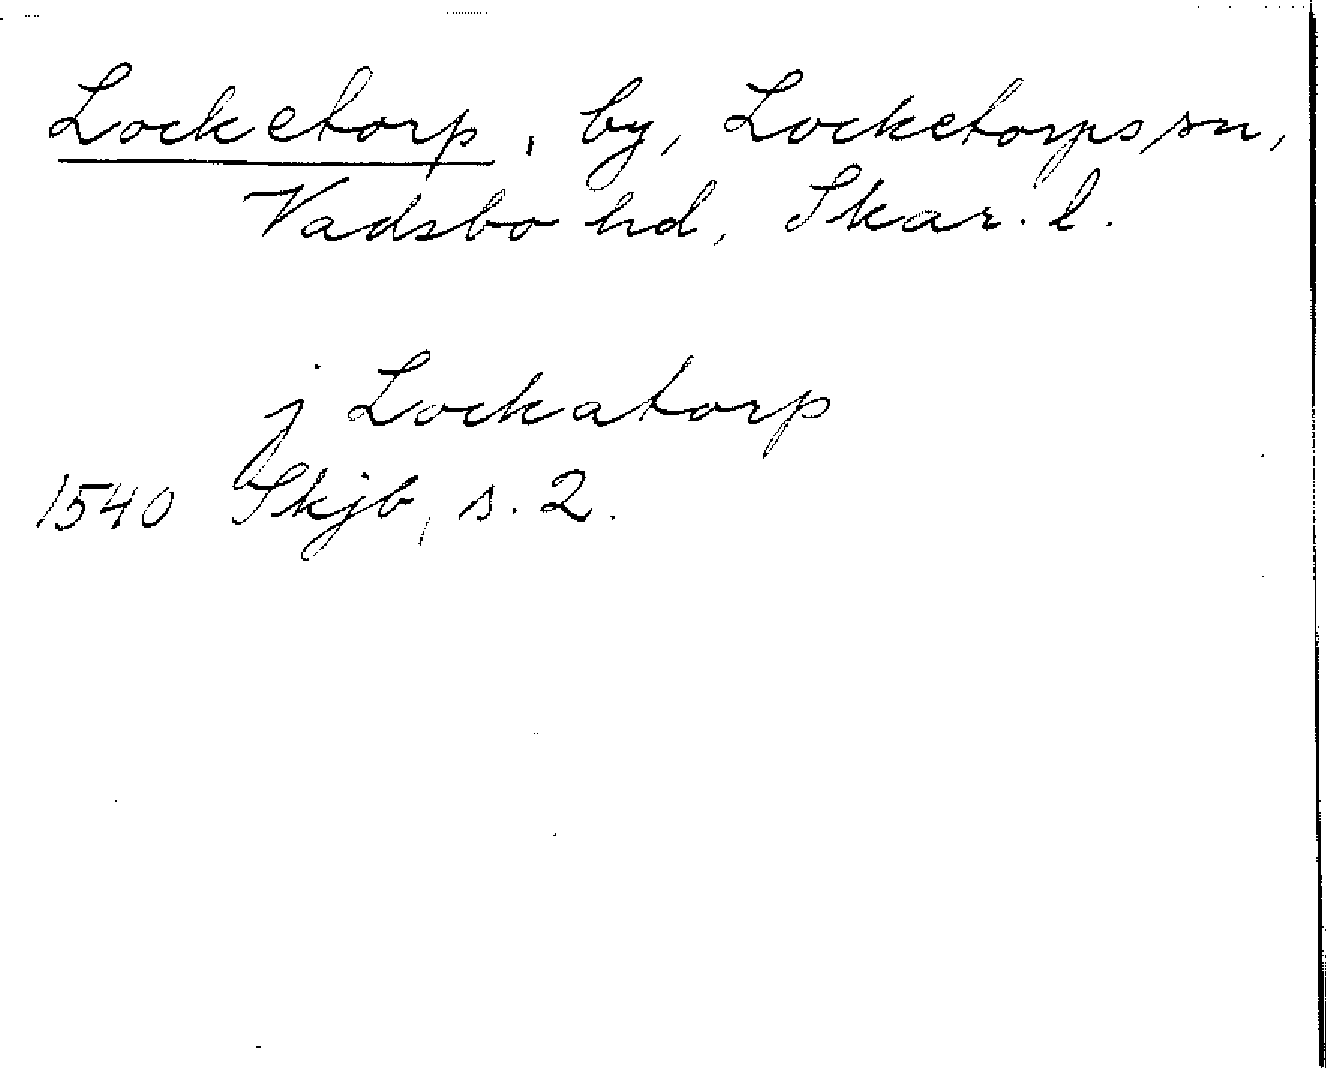 Locketorp, by, Locketorps sn,
Vadsbo hd, Skar. l.
j Lockatorp
1540 Skjb, s. 2.